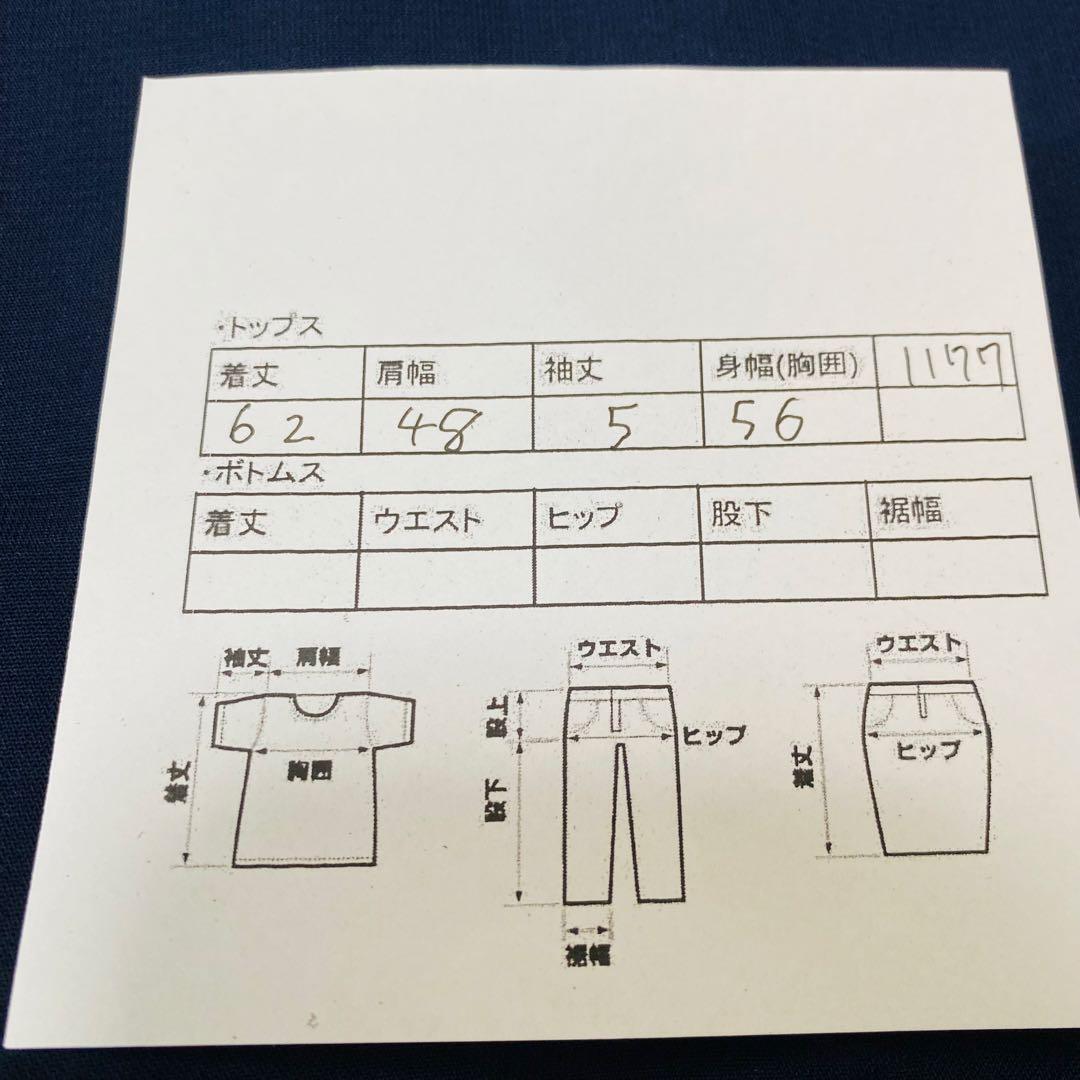 ・トップス
着丈 肩幅 袖丈 身幅(胸囲) 1177
62 48 5 56
・ボトムス
着丈 ウエスト ヒップ 股下 裾幅
袖丈 肩幅 ウエスト ウエスト
股上
ヒップ ヒップ
着丈 胸囲 股下 着丈
裾幅